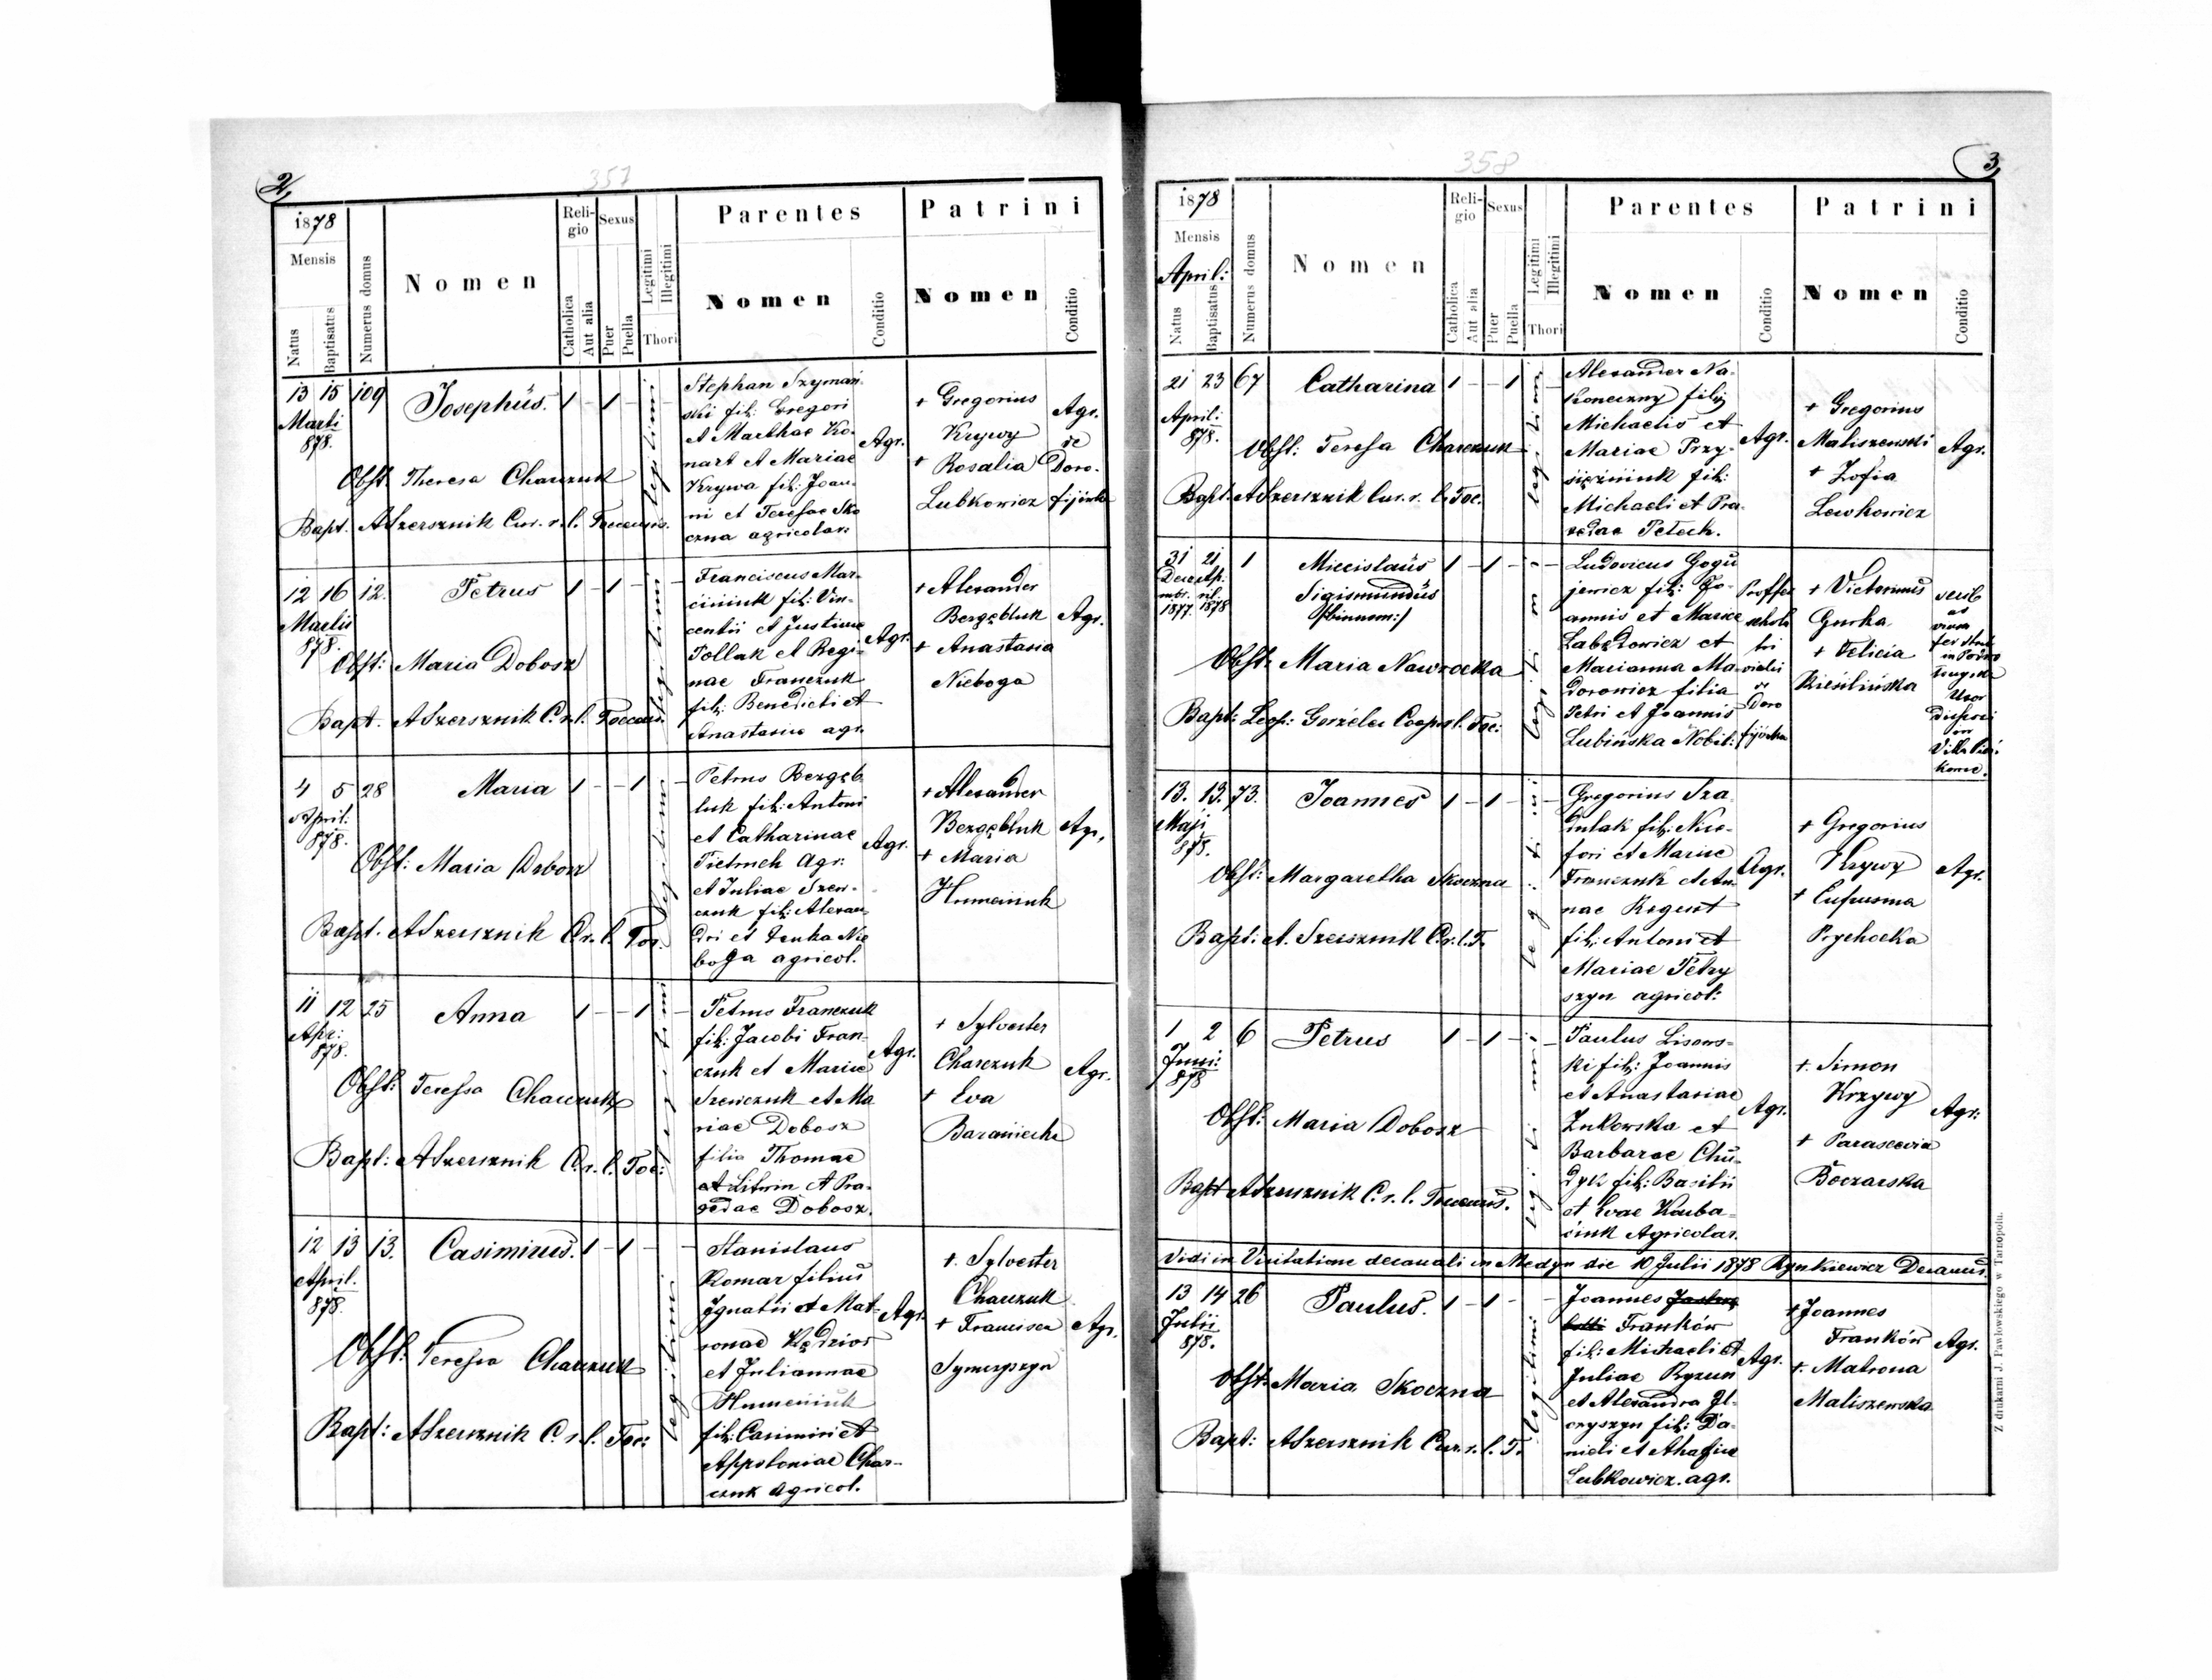 2,
357
1878
Mensis
Natus
Baptisatus
Numerus domus
Nomen
Religio
Catholica
Aut alia
Sexus
Puer
Puella
Legitimi
Illegitimi
Thori
Parentes
Nomen
Conditio
Patrini
Nomen
Conditio
13 15 109 Josephus. 1 - 1 -
Marti
878.
Obst. Theresa Charczuk
Bapt. ASzersznik Cur. r. l. Toccensis.
legitimi
Stephan Szymań-
ski fil: Gregori
et Marthae Ko-
nart et Mariae
Krywa fil: Joan-
ni et Teresae Sko
czna agricolar:
Agr.
+ Gregorius
Krywy
+ Rosalia
Lubkowicz
Agr.
de
Doro-
fijówka
12 16 12. Petrus 1 - 1 -
Martii
878.
Obst: Maria Dobosz
Bapt. ASzersznik C. r. l. Toccensis.
legitimi
Franciscus Mar-
ciniuk fil: Vin-
centii et Justinae
Pollak et Regi-
nae Franczuk
fil: Benedicti et
Anastasiae agr.
Agr.
+ Alexander
Bergębluk
+ Anastasia
Nieboga
Agr.
4 5 28 Maria 1 - - 1
April:
878.
Obst: Maria Dobosz
Bapt. ASzersznik C. r. l. Toc.
legitimi
Petrus Bergęb
luk fil: Antoni
et Catharinae
Pietruch Agr:
et Juliae Szew-
czuk fil: Alexan-
dri et Jenka Nie
boga agricol.
Agr.
+ Alexander
Bergębluk
+ Maria
Humeniuk
Agr,
11 12 25 Anna 1 - - 1
Apr:
878.
Obst: Teressa Charczuk
Bapt: ASzersznik C. r. l. Toc:
legitimi
Petrus Franczuk
fil: Jacobi Fran-
czuk et Mariae
Szewczuk et Ma
riae Dobosz
filia Thomae
et Litwin et Pra-
xedae Dobosz.
Agr.
+ Sylvester
Charczuk
+ Eva
Baraniecka
Agr.
12 13 13. Casimirus. 1 - 1 -
April.
878.
Obst: Teressa Charczuk
Bapt: ASzersznik C. r. l. Toc:
legitimi
Stanislaus
Komar filius
Ignatii et Mat-
ronae Kędzior
et Juliannae
Humeniuk
fil: Casimiri et
Appoloniae Char-
czuk agricol.
Agr.
+. Sylvester
Charczuk
+ Francisca
Agr.
3,
358
1878
Mensis
April:
Natus
Baptisatus
Numerus domus
Nomen
Religio
Catholica
Aut alia
Sexus
Puer
Puella
Legitimi
Illegitimi
Thori
Parentes
Nomen
Conditio
Patrini
Nomen
Conditio
21 23 67 Catharina 1 - - 1
April:
878.
Obst: Teresa Charczuk
Bapt. ASzersznik Cur. r. l. Toc.
legitimi
Alexander Na-
koneczny filij
Michaelis et
Mariae Przy-
siężniuk fil:
Michaeli et Pra-
xedae Petech.
Agr.
+ Gregorius
Maliszewski
+ Zofia
Lewkowicz
Agr.
31 21 1 Miecislaus 1 - 1 -
Decembr. April.
1877. 1878
Sigismundus
/:binnum:/
Obst: Maria Nawrocka
Bapt: Leop: Gorzelec Coop. r. l. Toc:
legitimi
Ludovicus Gogu
jewicz fil: Jo-
annis et Mariae
Labędowicz et
Marianna Ma-
dorowicz filia
Petri et Joannis
Lubińska Nobil:
+ Victorinus
Gurka
+ Felicia
13. 13. 73. Joannes 1 - 1 -
Maji
878.
Obst: Margaretha Skoczna
Bapt: A. Szersznik C. r. l. T.
legitimi
Gregorius Sza-
dulak fil: Nice-
fori et Mariae
Franczuk et An-
nae Regent
fil: Antoni et
Mariae Petry
szyn agricol:
Agr.
+ Gregorius
Krywy
+ Eufrusina
Prychocka
Agr.
1 2 6 Petrus 1 - 1 -
Juni:
878
Obst: Maria Dobosz
Bapt ASzersznik C. r. l. Toccensis.
legitimi
Paulus Lisows-
ki fil: Joannis
et Anastasiae
Zukowska et
Barbarae Chu-
dyk fil: Basilii
et Evae Kuba-
ciuk Agricolar.
Agr.
+. Simon
Krzywy
+ Parascevia
Boczarska
Agr:
Vidi in Visitatione decanali in Medyn die 10 Julii 1878 Rynkiewicz Decanus.
13 14 26 Paulus. 1 - 1 -
Julii
878.
Obst: Maria Skoczna
Bapt: ASzersznik Cur. r. l. T.
legitimi
Joannes
Franków
fil: Michaeli et
Juliae Ryzun
et Alexandra Il-
czyszyn fil: Da-
nieli et Ahafiae
Lubkowicz. agr.
Agr.
+ Joannes
Franków
+. Matrona
Maliszewska
Agr.
Z drukarni J. Pawłowskiego w Tarnopolu.